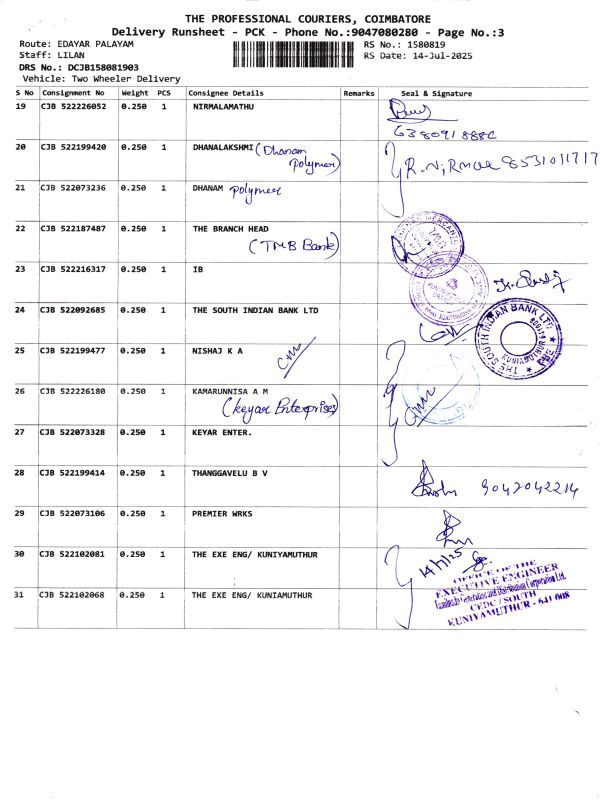 THE PROFESSIONAL COURIERS, COIMBATORE
Delivery Runsheet - PCK - Phone No.:9047080280 - Page No.:3
Route: EDAYAR PALAYAM RS No.: 1580819
Staff: LILAN RS Date: 14-Jul-2025
DRS No.: DCJB158081903
Vehicle: Two Wheeler Delivery
S No Consignment No Weight PCS Consignee Details Remarks Seal & Signature
19 CJB 522226052 0.250 1 NIRMALAMATHU
20 CJB 522199420 0.250 1 DHANALAKSHMI (Dhanam
polymer) R. NiRmala 8531011717
21 CJB 522073236 0.250 1 DHANAM polymer
22 CJB 522187487 0.250 1 THE BRANCH HEAD
(TMB Bank)
23 CJB 522216317 0.250 1 IB
24 CJB 522092685 0.250 1 THE SOUTH INDIAN BANK LTD
THE SOUTH INDIAN BANK LTD.
KUNIAMUTHUR
25 CJB 522199477 0.250 1 NISHAJ K A
26 CJB 522226180 0.250 1 KAMARUNNISA A M
(Keyar Enterprises)
27 CJB 522073328 0.250 1 KEYAR ENTER.
28 CJB 522199414 0.250 1 THANGGAVELU B V
9042042214
29 CJB 522073106 0.250 1 PREMIER WRKS
30 CJB 522102081 0.250 1 THE EXE ENG/ KUNIYAMUTHUR
14/7/25
OFFICE OF THE
EXECUTIVE ENGINEER
Tamilnadu Generation and Distribution Corporation Ltd.
CEDC / SOUTH
KUNIYAMUTHUR - 641 008
31 CJB 522102068 0.250 1 THE EXE ENG/ KUNIYAMUTHUR